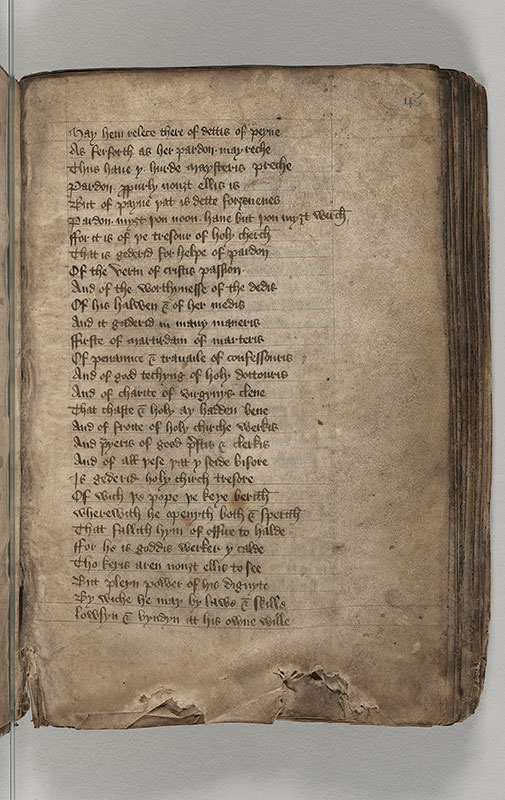 May hem relece there of dettis of peyne
As ferforth as her pardon may reche
Thus haue y hurde maysteris preche
Pardon nouȝt ellis is
But of payne þat is dette forȝeuenes
Pardon myȝt þou noon haue but þou myȝt wirch
ffor it is of þe tresour of holy cherch
That is gederid for helpe of pardon
Of the vertu of cristis passion
And of the worthynesse of the dedis
Of his halwen & of her medis
And it gederid in many maneris
ffirste of martirdam of marteris
Of penaunce & trauaile of confessouris
And of god techyng of holy dottouris
And of charite of virgynys clene
That chaste & holy ay hadden bene
And of frotte of holy chirche werkis
And pyeris of good pstis & clerkis
And of all þese þat y seide bifore
Is gederid holy chirch tresore
Of wich þe pope þe keye berith
Wherewith he openyth both & sperith
That fallith hym of office to halde
ffor he is goddis werker y calde
Tho keyis aren nouȝt ellis to see
But pleyn power of his dignyte
By wiche he may by lawe & skille
lowsyn & byndyn at his owne wille